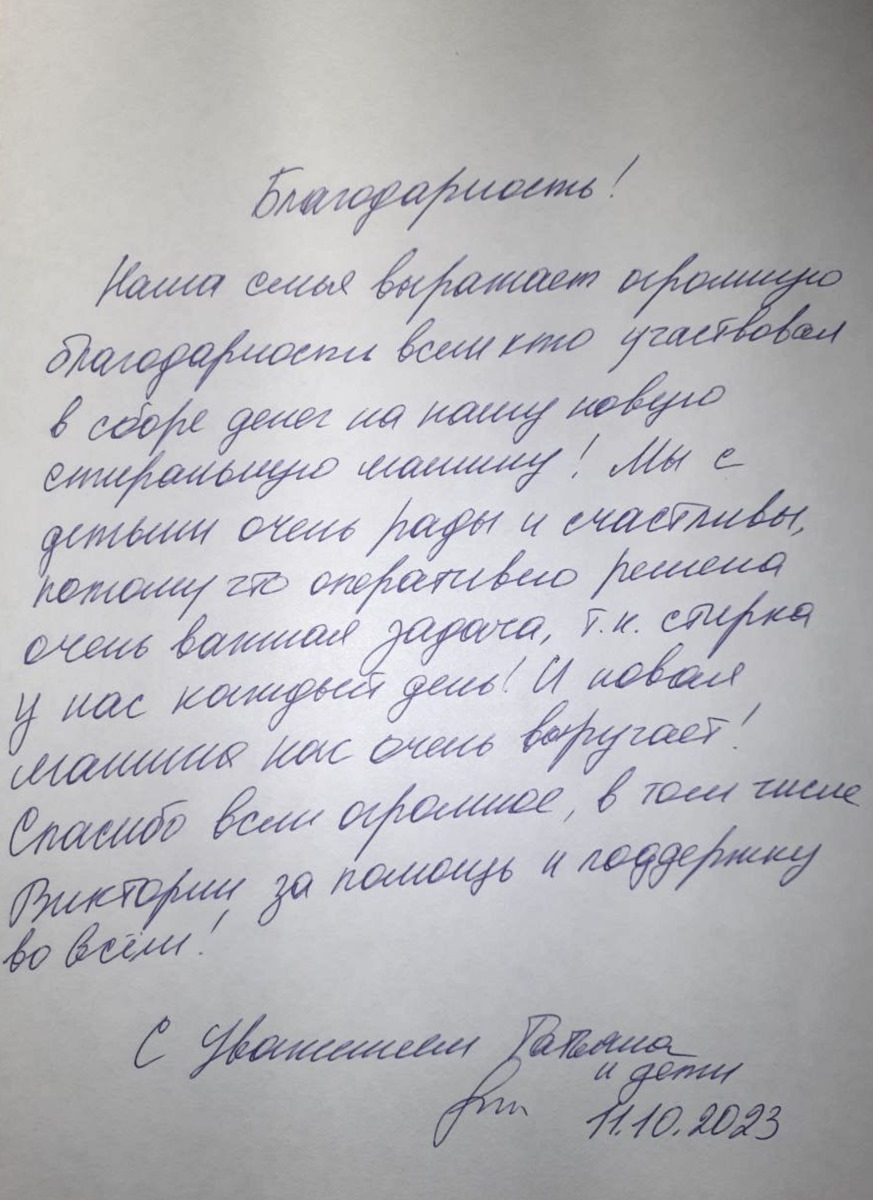 Благодарность!
Наша семья выражает огромную
благодарность всем кто участвовал
в сборе денег на нашу новую
стиральную машину! Мы с
детьми очень рады и счастливы,
потому что оперативно решена
очень важная задача, т.к. стирка
у нас каждый день! И новая
машина нас очень выручает!
Спасибо всем огромное, в том числе
Виктории за помощь и поддержку
во всём!
С Уважением Татьяна
и дети
11.10.2023